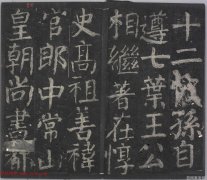 十二代孫自
遵七葉王公
相繼著在惇
史高祖善禕
官郎中常山
皇朝尚書都